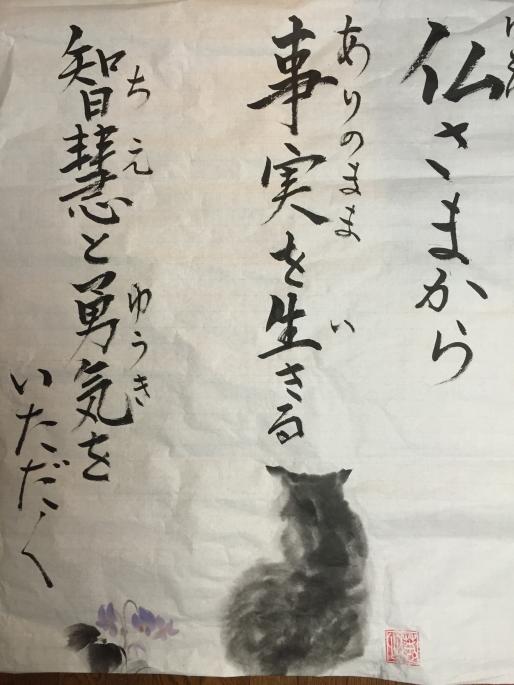 仏さまから
ありのまま
事実を生きる
い
ちえ ゆうき
智慧と勇気を
いただく